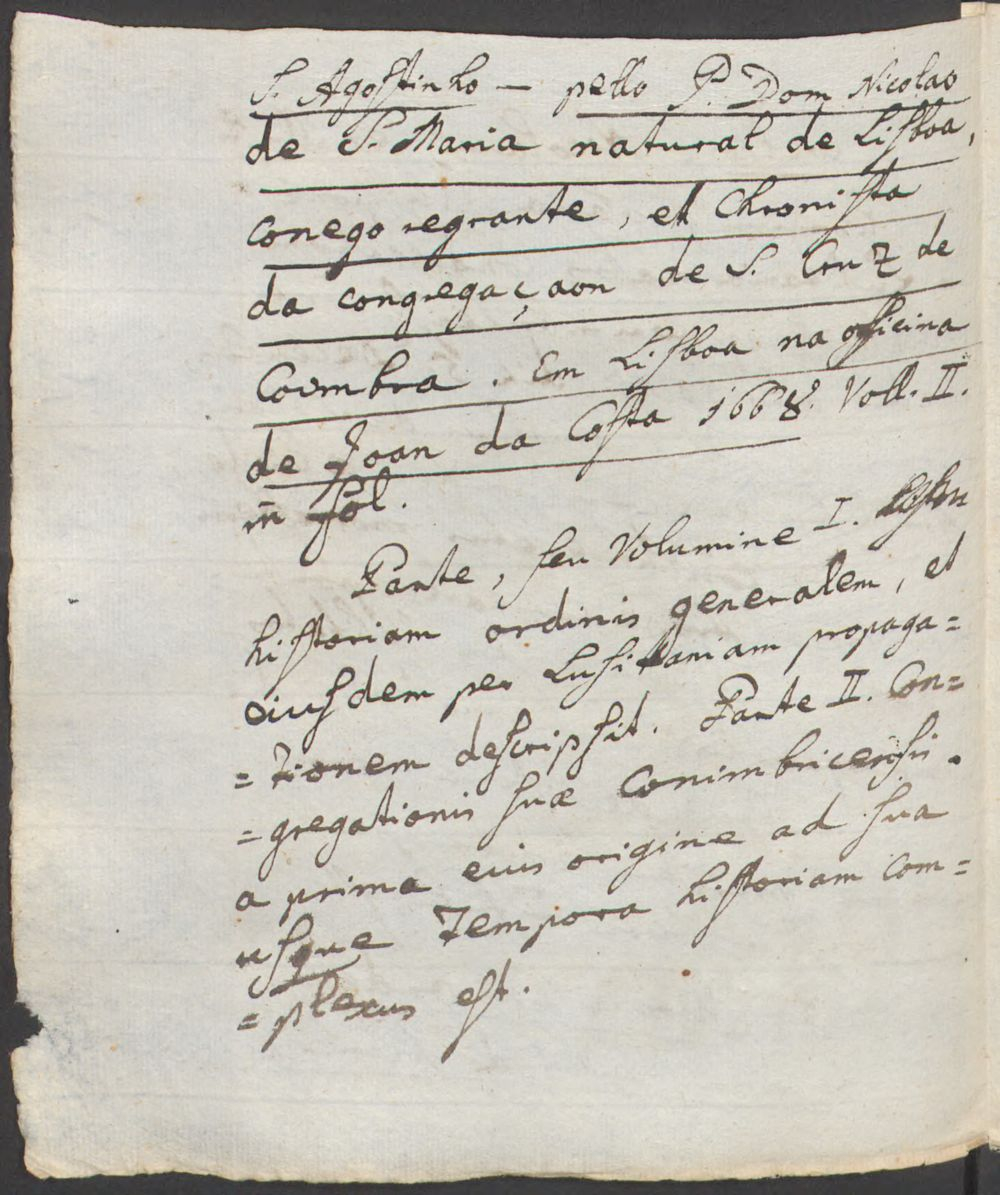 S. Agostinho — pello P. Dom Nicolao
de S. Maria natural de Lisboa,
conego regrante, et Chronista
da congregaçaon de S. Cruz de
Coimbra. Em Lisboa na officina
de Joan da Costa 1668. Voll. II.
in fol.
Parte, seu Volumine I.
historiam ordinis generalem, et
eiusdem per Lusitaniam propaga=
=tionem descripsit. Parte II. Con=
=gregationis suæ Conimbricensis.
a prima eius origine ad sua
usque tempora historiam com=
=plexus est.